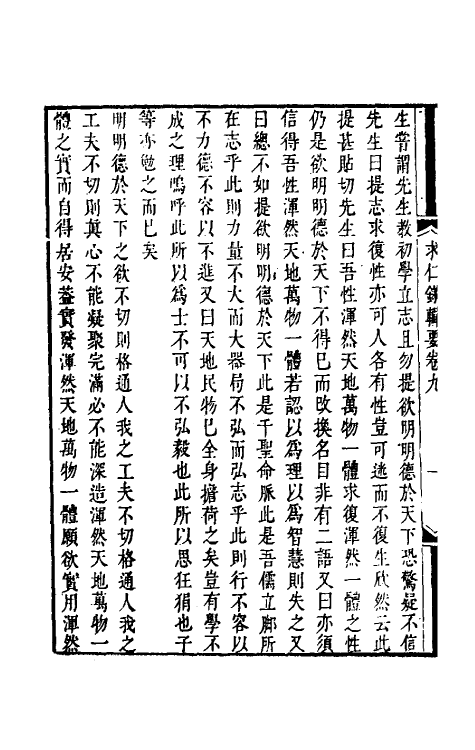 求仁錄輯要卷九
一
生嘗謂先生教初學立志且勿提欲明明德於天下恐驚疑不信
先生曰提志求復性亦可人各有性豈可逃而不復生欣然云此
提甚貼切先生曰吾性渾然天地萬物一體求復渾然一體之性
仍是欲明明德於天下不得已而改換名目非有二語又曰亦須
信得吾性渾然天地萬物一體若認以為理以為智慧則失之又
曰總不如提欲明明德於天下此是千聖命脈此是吾儒立腳所
在志乎此則力量不大而大器局不弘而弘志乎此則行不容以
不力德不容以不進又曰天地民物已全身擔荷之矣豈有學不
成之理嗚呼此所以為士不可以不弘毅也此所以思狂狷也子
等亦勉之而已矣
明明德於天下之欲不切則格通人我之工夫不切格通人我之
工夫不切則真心不能凝聚完滿必不能深造渾然天地萬物一
體之實而自得居安蓋實發渾然天地萬物一體願欲實用渾然